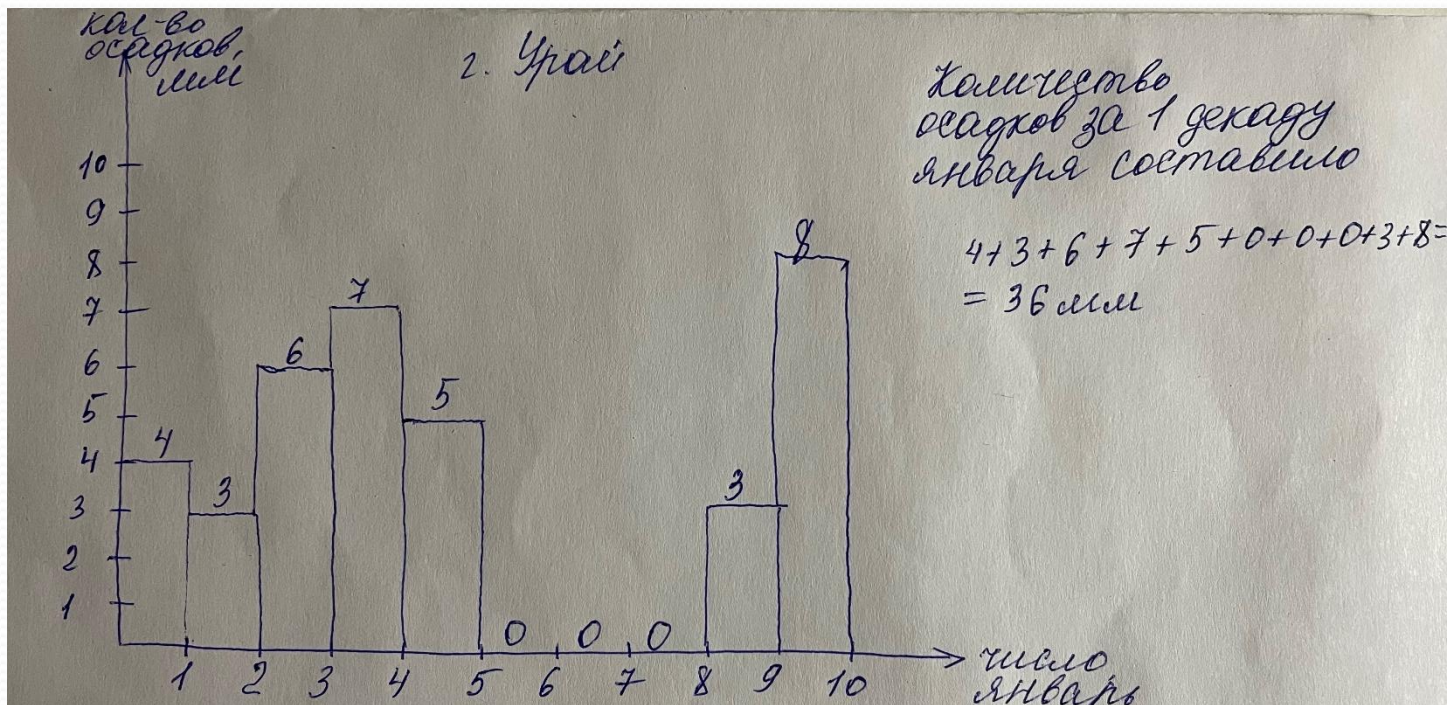 кол-во
осадков,
мм
г. Урай
Количество
осадков за 1 декаду
января составило
4+3+6+7+5+0+0+0+3+8=
= 36 мм
10
9
8
7
6
5
4
3
2
1
4
3
6
7
5
0 0 0
3
8
1 2 3 4 5 6 7 8 9 10
число,
январь